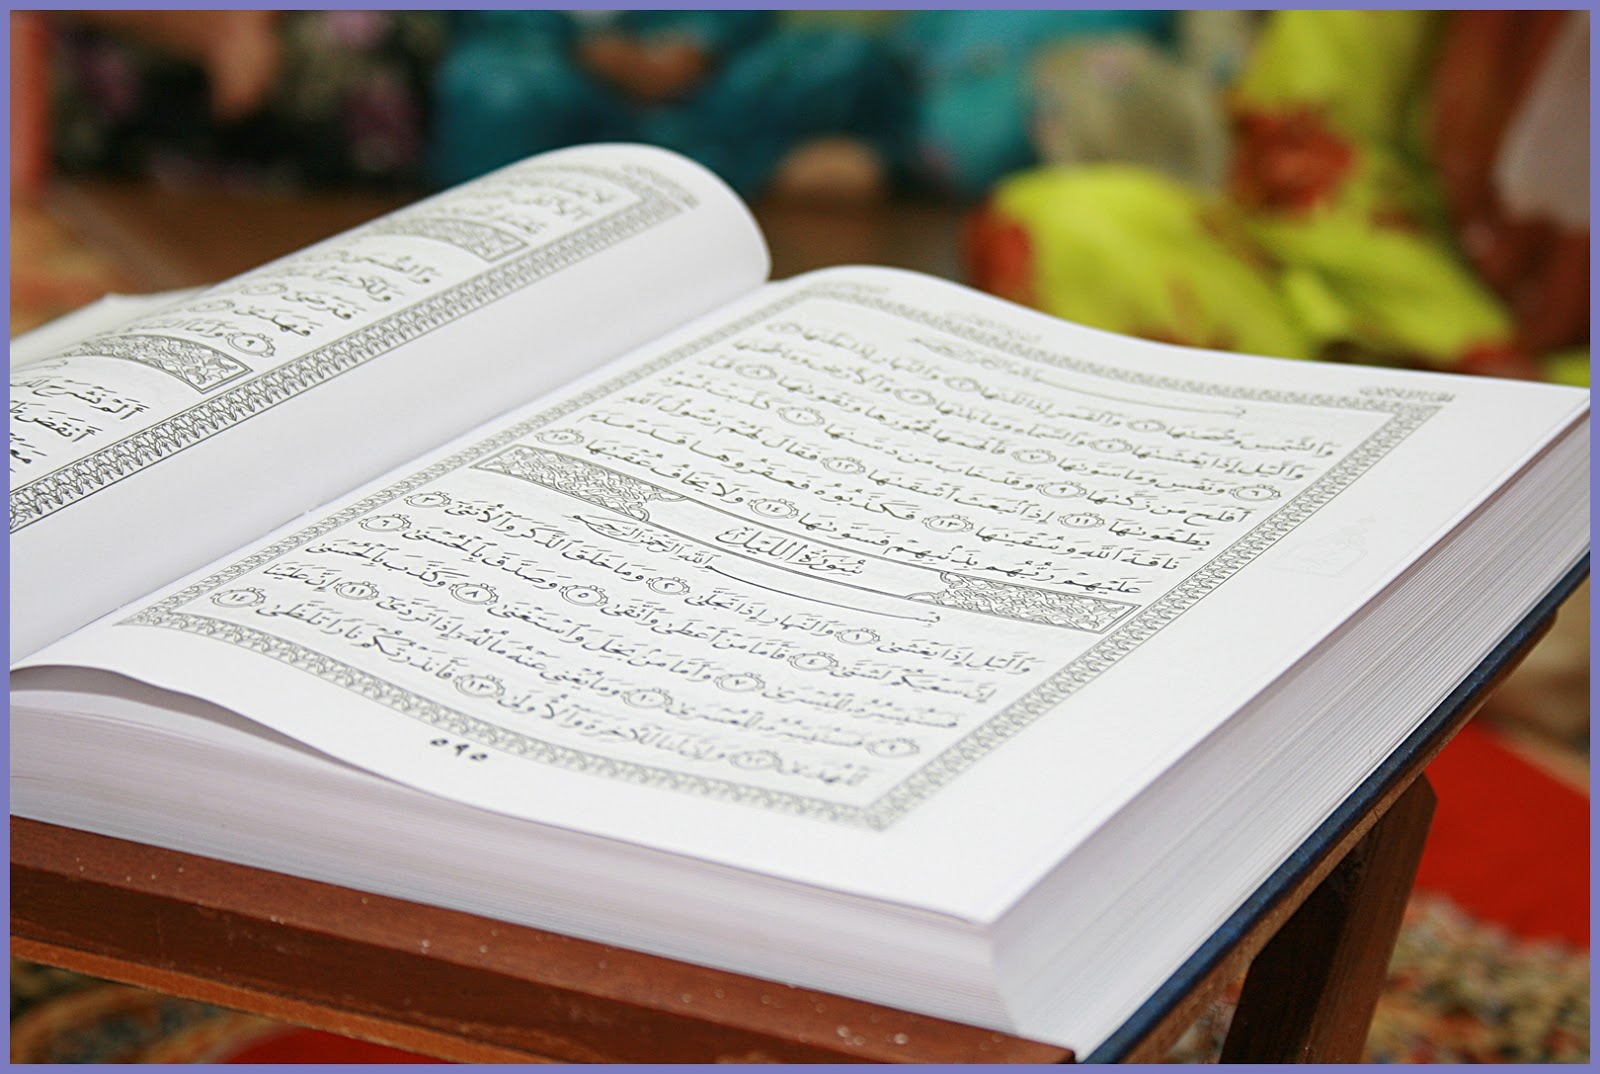 بِسْمِ ٱللَّهِ ٱلرَّحْمَٰنِ ٱلرَّحِيمِ
وَٱلشَّمْسِ وَضُحَىٰهَا ١ وَٱلْقَمَرِ إِذَا تَلَىٰهَا ٢ وَٱلنَّهَارِ إِذَا جَلَّىٰهَا ٣
وَٱلَّيْلِ إِذَا يَغْشَىٰهَا ٤ وَٱلسَّمَآءِ وَمَا بَنَىٰهَا ٥ وَٱلْأَرْضِ وَمَا طَحَىٰهَا
٦ وَنَفْسٍ وَمَا سَوَّىٰهَا ٧ فَأَلْهَمَهَا فُجُورَهَا وَتَقْوَىٰهَا ٨ قَدْ
أَفْلَحَ مَن زَكَّىٰهَا ٩ وَقَدْ خَابَ مَن دَسَّىٰهَا ١٠ كَذَّبَتْ ثَمُودُ
بِطَغْوَىٰهَآ ١١ إِذِ ٱنۢبَعَثَ أَشْقَىٰهَا ١٢ فَقَالَ لَهُمْ رَسُولُ ٱللَّهِ
نَاقَةَ ٱللَّهِ وَسُقْيَٰهَا ١٣ فَكَذَّبُوهُ فَعَقَرُوهَا فَدَمْدَمَ
عَلَيْهِمْ رَبُّهُم بِذَنۢبِهِمْ فَسَوَّىٰهَا ١٤ وَلَا يَخَافُ عُقْبَٰهَا ١٥
سُورَةُ ٱللَّيْلِ
بِسْمِ ٱللَّهِ ٱلرَّحْمَٰنِ ٱلرَّحِيمِ
وَٱلَّيْلِ إِذَا يَغْشَىٰ ١ وَٱلنَّهَارِ إِذَا تَجَلَّىٰ ٢ وَمَا خَلَقَ ٱلذَّكَرَ وَٱلْأُنثَىٰٓ ٣
إِنَّ سَعْيَكُمْ لَشَتَّىٰ ٤ فَأَمَّا مَنْ أَعْطَىٰ وَٱتَّقَىٰ ٥ وَصَدَّقَ بِٱلْحُسْنَىٰ ٦
فَسَنُيَسِّرُهُۥ لِلْيُسْرَىٰ ٧ وَأَمَّا مَنۢ بَخِلَ وَٱسْتَغْنَىٰ ٨ وَكَذَّبَ بِٱلْحُسْنَىٰ
٩ فَسَنُيَسِّرُهُۥ لِلْعُسْرَىٰ ١٠ وَمَا يُغْنِى عَنْهُ مَالُهُۥٓ إِذَا تَرَدَّىٰٓ ١١ إِنَّ عَلَيْنَا
لَلْهُدَىٰ ١٢ وَإِنَّ لَنَا لَلْءَاخِرَةَ وَٱلْأُولَىٰ ١٣ فَأَنذَرْتُكُمْ نَارًا تَلَظَّىٰ ١٤
٥٩٥
وَٱلضُّحَىٰ
فَتَرْضَىٰٓ
فَهَدَىٰ
٩ وَأَمَّا
أَلَمْ نَشْرَحْ لَكَ
أَنقَضَ